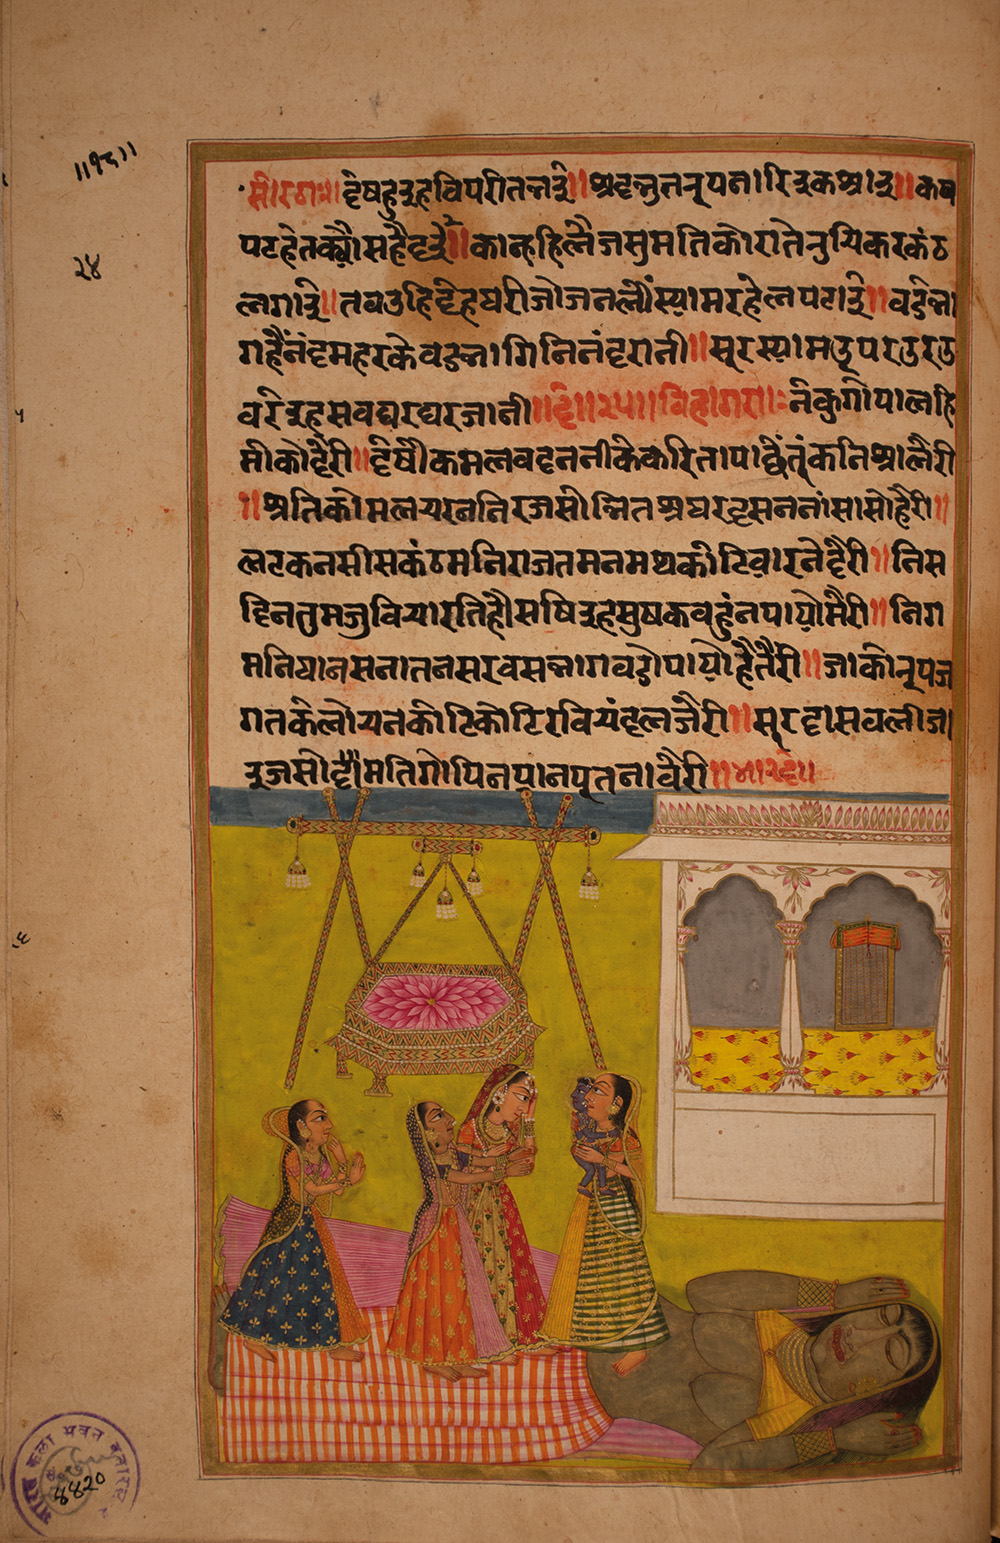 ॥१८॥
२४
सोरठ॥ देषहु इह विपरीत नई॥ अदभुत रूप नारि इक आई॥ कप
पट हेत क्यौं सहै दई॥ कान्हहि लै जसुमति कोरा ते रुचि कर कंठ
लगाई॥ तव उहि देह धरी जोजन लौं स्याम रहे लपटाई॥ वडे भा
ग हैं नंद महर के वडभागिनि नंदरानी॥ सूर स्याम उपर उर उ
वरे इह सव घर घर जानी॥ दे॥२५॥ विहागरा॥ नैकु गोपालहि
मोकों दै री॥ देषौं कमल वदन नीके करि ता पाछें तूं कनिआ लै री
॥ अति कोमल चरन निरज सोभित अधर दसन नांसा सोहै री॥
लटकन सीस कंठ मनि राजत मनमथ कोटि वारने दै री॥ निस
दिन तुम जु विचारति हौ सषि इह सुष कवहुं न पायो मै री॥ निग
म निधान सनातन सरवस भाग वडे पायो है तै री॥ जाको रूप ज
गत के लोचन कोटि कोटि रवि चंद लजै री॥ सूरदास वली जा
इ जसोदा मति गोपिन प्रान पूतना वैरी॥
भारत कला भवन बनारस
४४२०